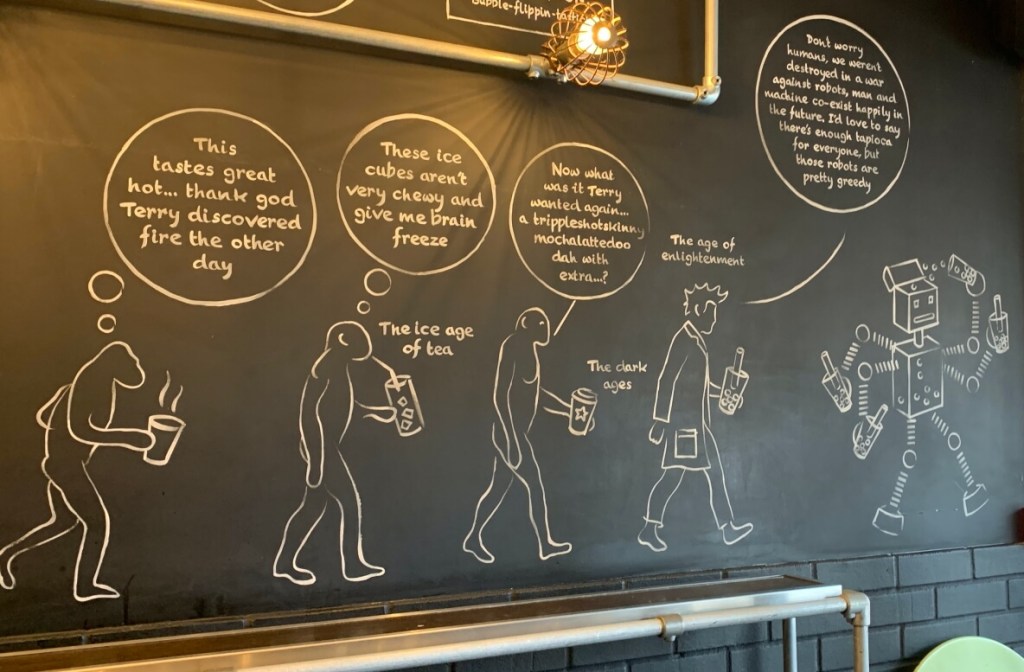 bubble-flippin-tastic
This
tastes great
hot... thank god
Terry discovered
fire the other
day
These ice
cubes aren't
very chewy and
give me brain
freeze
The ice age
of tea
Now what
was it Terry
wanted again...
a trippleshotskinny
mochalattedoo
dah with
extra...?
The dark
ages
The age of
enlightenment
Dont worry
humans, we werent
destroyed in a war
against robots, man and
machine co-exist happily in
the future. I'd love to say
there's enough tapioca
for everyone, but
those robots are
pretty greedy